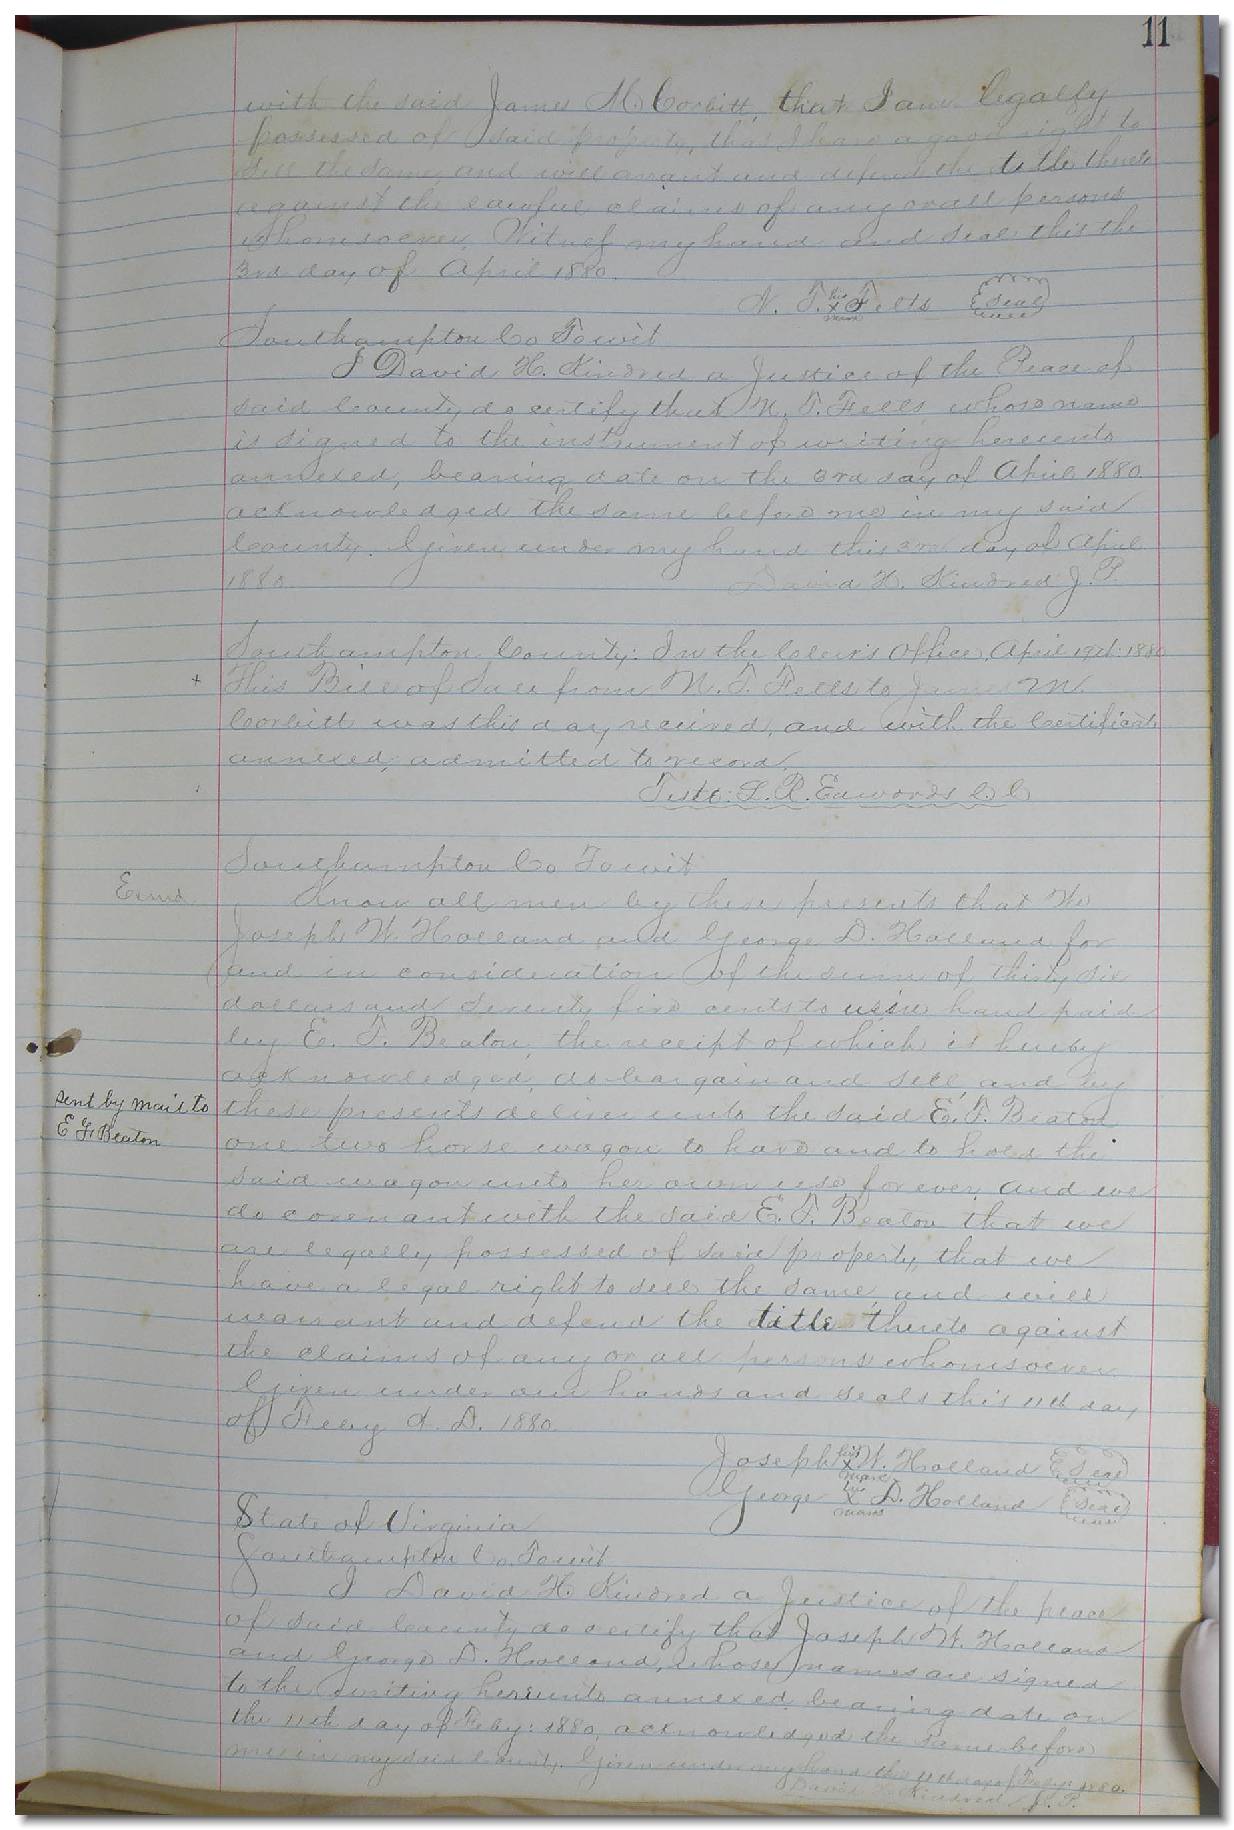 11
with the said James M. Corbitt, that I am legally
possessed of said property, that I have a good right to
sell the same, and will warrant and defend the title thereto
against the lawful claims of any or all persons
whomsoever. Witness my hand and seal this the
3rd day of April 1880.
N. T. his X mark Felts Seal
Southampton Co Towit
I David H. Kindred a Justice of the Peace of
said County do certify that N. T. Felts, whose name
is signed to the instrument of writing hereunto
annexed, bearing date on the 3rd day of April 1880
acknowledged the same before me in my said
County. Given under my hand this 3rd day of April
1880. David H. Kindred J. P.
Southampton County: In the Clerk's Office, April 19th 1880
+ This Bill of Sale from N. T. Felts to James M.
Corbitt was this day received, and with the Certificate
annexed, admitted to record.
Teste: L. R. Edwards C. C
Southampton Co Towit
Exmd.
Know all men by these presents that We
Joseph W. Holland and George D. Holland for
and in consideration of the sum of thirty six
dollars and seventy five cents to us in hand paid
by E. F. Beaton, the receipt of which is hereby
acknowledged, do bargain and sell, and by
sent by mail to
E F. Beaton
these presents deliver unto the said E. F. Beaton
one two horse wagon to have and to hold the
said wagon unto her own use forever, and we
do covenant with the said E. F. Beaton that we
are legally possessed of said property, that we
have a legal right to sell the same, and will
warrant and defend the title thereto against
the claims of any or all persons whomsoever.
Given under our hands and seals this 11th day
of Feby A. D. 1880.
Joseph his X mark W. Holland Seal
George his X mark D. Holland Seal
State of Virginia
Southampton Co. Towit
I David H. Kindred a Justice of the peace
of said County do certify that Joseph W. Holland
and George D. Holland, whose names are signed
to the writing hereunto annexed bearing date on
the 11th day of Feby: 1880, acknowledged the same before
me in my said County. Given under my hand this 11th day of Feby: 1880.
David H. Kindred J. P.